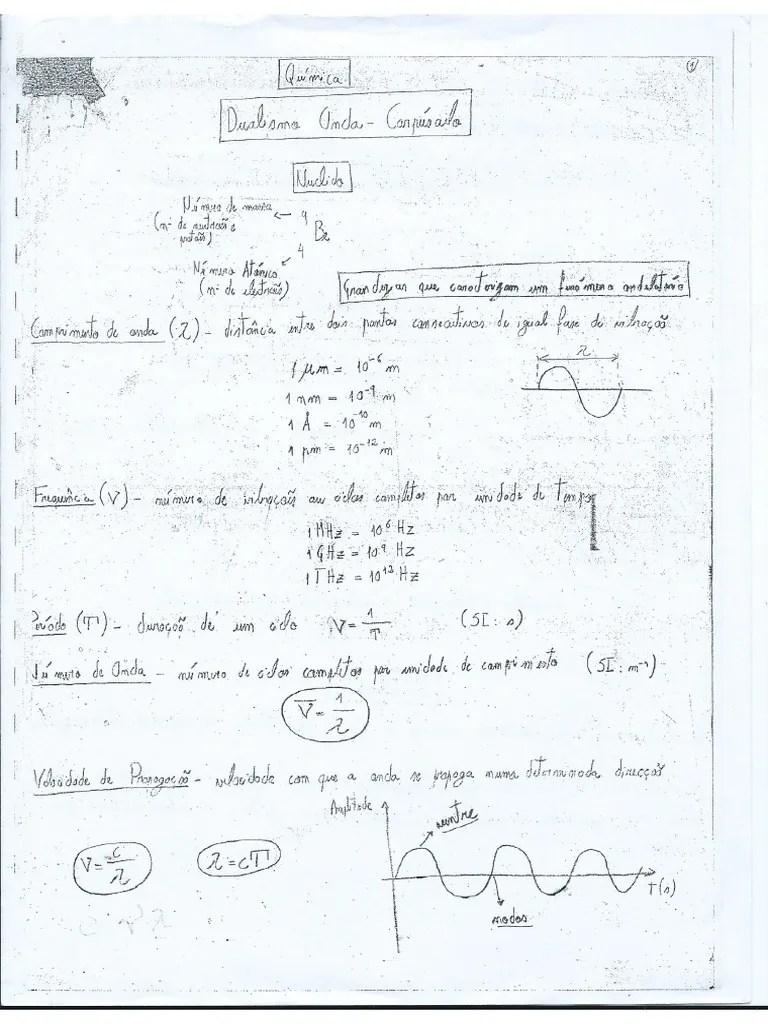 1
Química
Dualismo Onda - Corpúsculo
Nuclido
Número de massa
(nº de neutrões e
protões)
9
Be
4
Número Atómico
(nº de electrões)
Grandezas que caracterizam um fenómeno ondulatório
Comprimento de onda (λ) - distância entre dois pontos consecutivos de igual fase de vibração
λ
1 μm = 10⁻⁶ m
1 nm = 10⁻⁹ m
1 Å = 10⁻¹⁰ m
1 pm = 10⁻¹² m
Frequência (ν) - número de vibrações ou ciclos completos por unidade de Tempo
1 MHz = 10⁶ Hz
1 GHz = 10⁹ Hz
1 THz = 10¹² Hz
Período (T) - duração de um ciclo ν = 1/T (SI: s)
Número de Onda - número de ciclos completos por unidade de comprimento (SI: m⁻¹)
ν̅ = 1/λ
Velocidade de Propagação - velocidade com que a onda se propaga numa determinada direcção
Amplitude
ventre
ν = c/λ λ = cT
T(s)
nodos